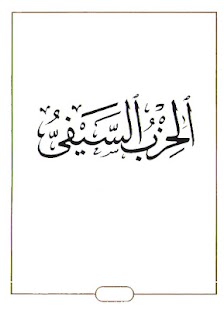 الْحِزْبُ السَّيْفِىُّ